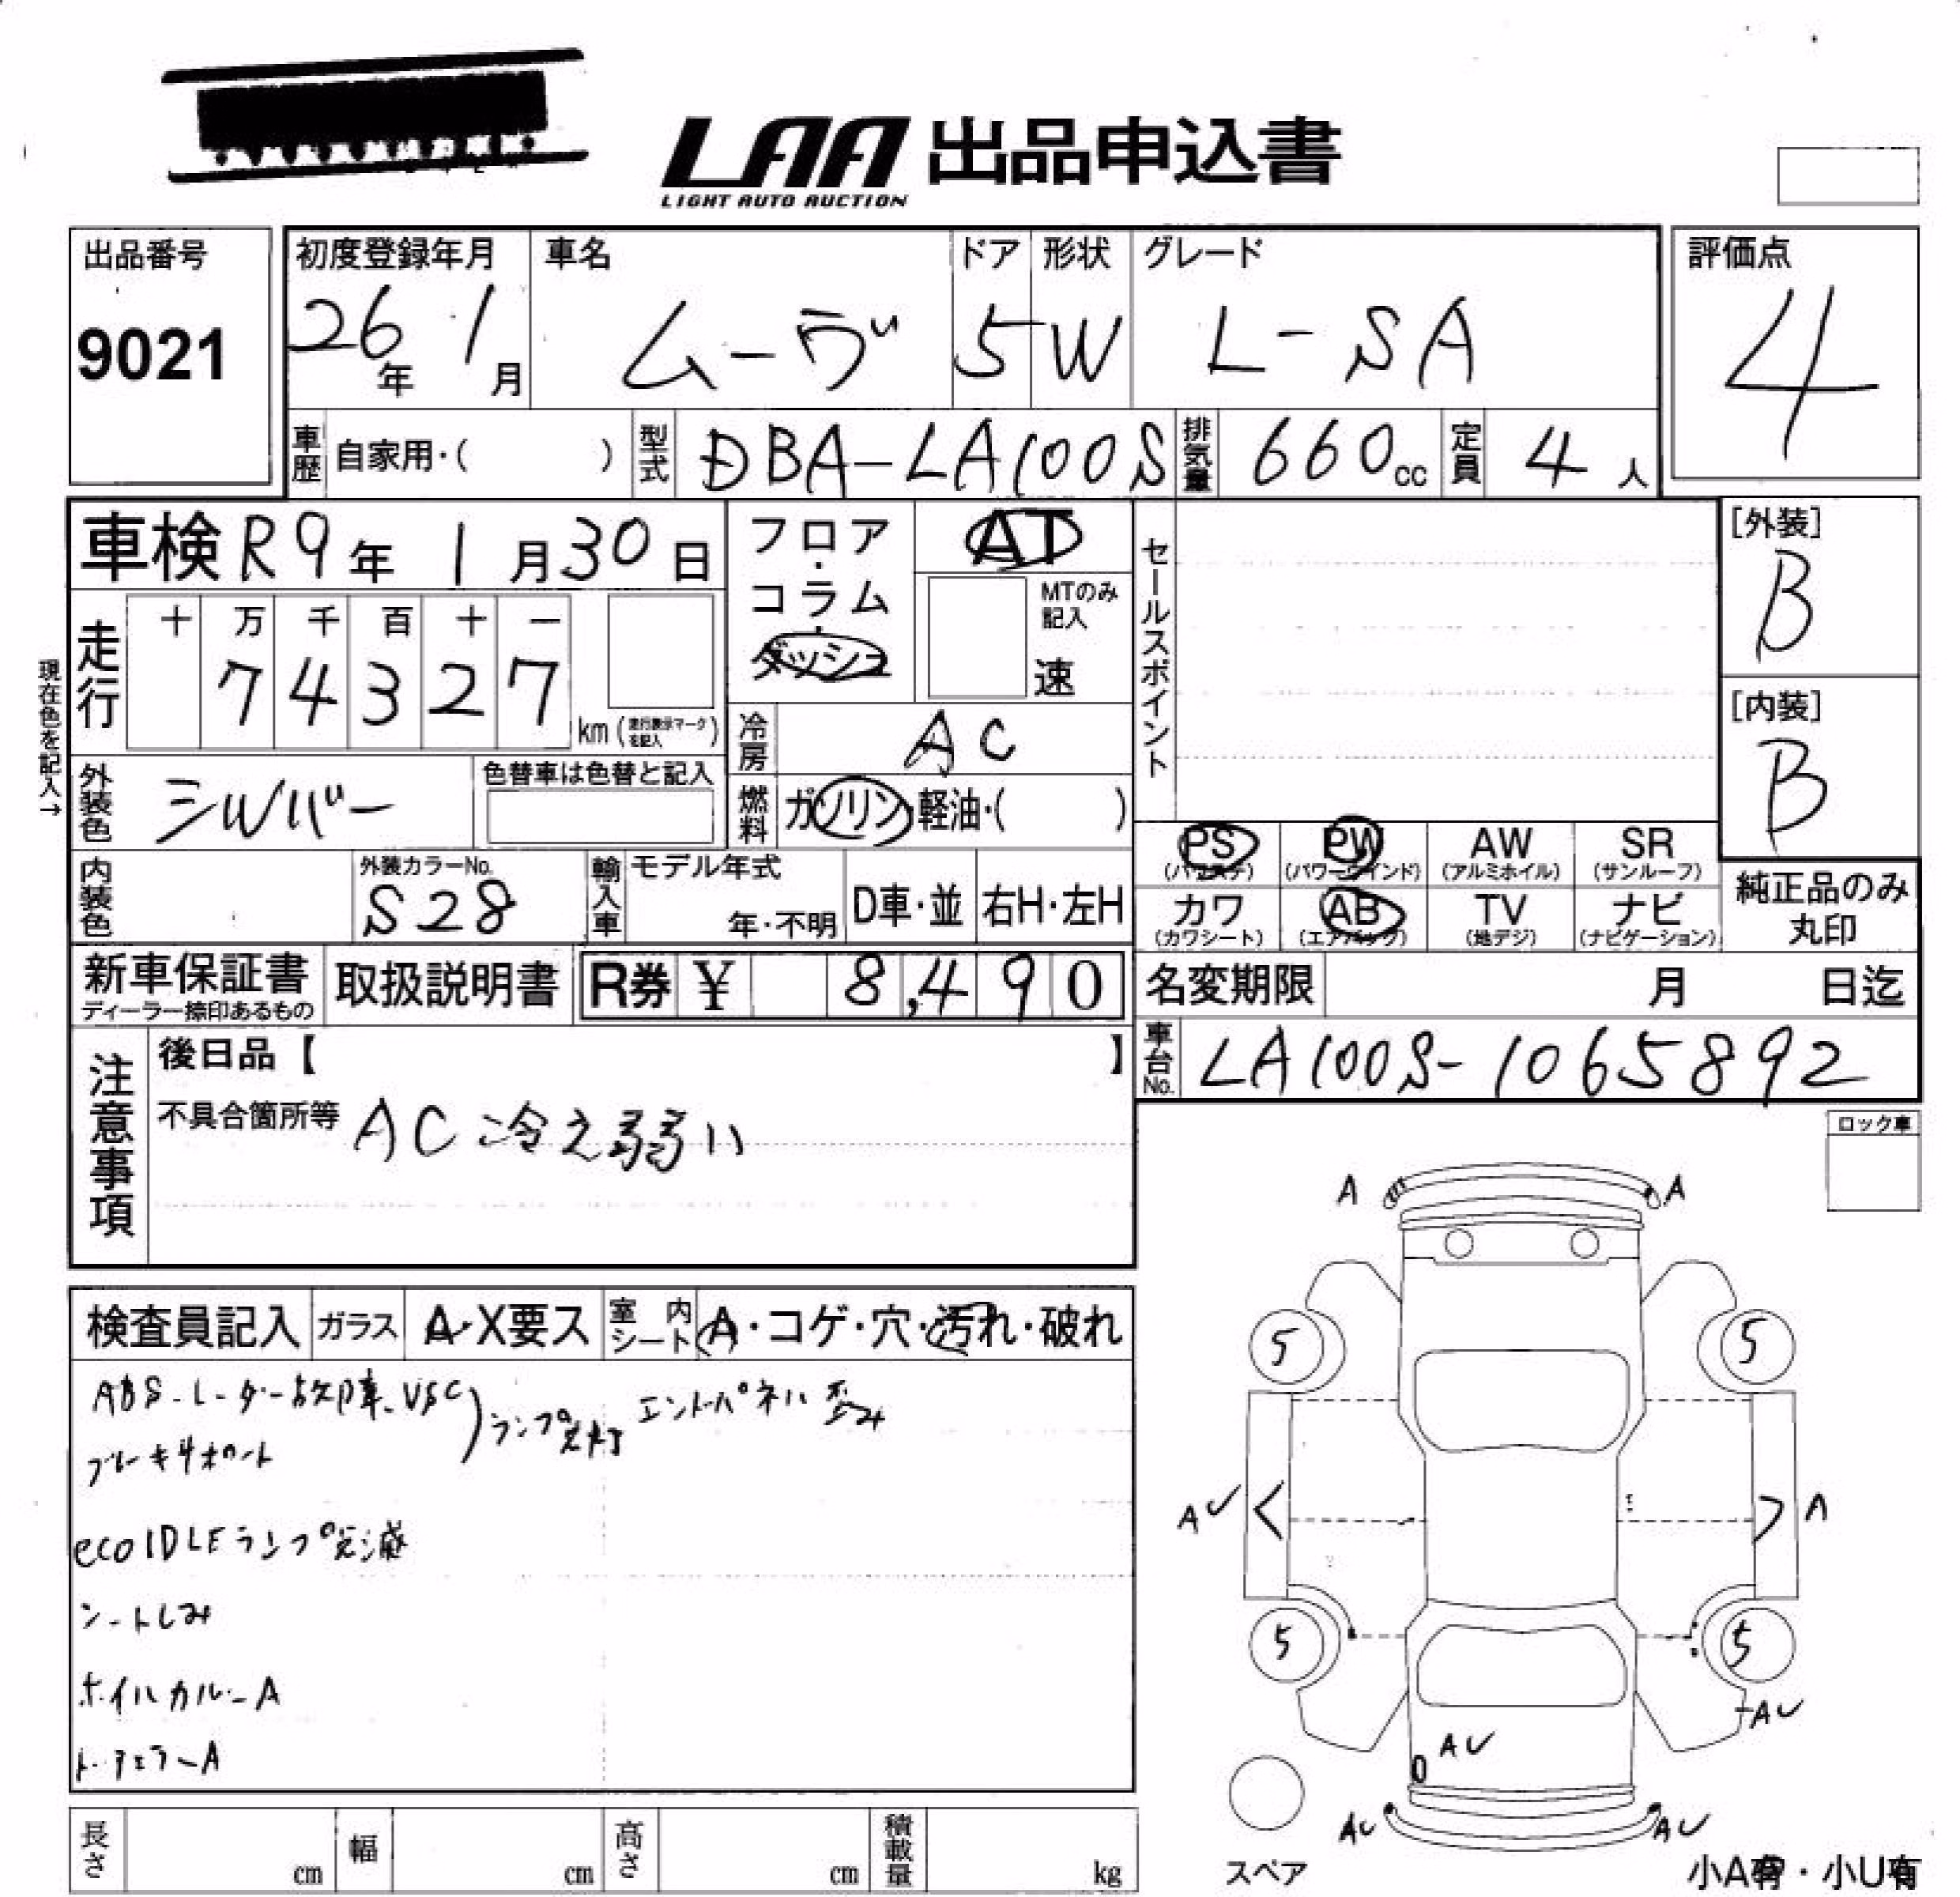 LAA 出品申込書
LIGHT AUTO AUCTION
出品番号
9021
初度登録年月
26年 1月
車名
ムーヴ
ドア
5
形状
W
グレード
L-SA
評価点
4
車歴 自家用・( )
型式 DBA-LA100S
排気量 660cc
定員 4人
車検 R9年 1月30日
フロア・コラム・ダッシュ
AT
MTのみ記入
速
セールスポイント
[外装]
B
[内装]
B
現在色を記入→
走行
十 万 千 百 十 一
7 4 3 2 7
km (走行表示マークを記入)
冷房 AC
外装色 シルバー
色替車は色替と記入
燃料 ガソリン・軽油・( )
PS (パワステ) PW (パワーウインド) AW (アルミホイル) SR (サンルーフ)
内装色
外装カラーNo.
S28
輸入車 モデル年式
年・不明
D車・並
右H・左H
カワ (カワシート) AB (エアバック) TV (地デジ) ナビ (ナビゲーション)
純正品のみ丸印
新車保証書
ディーラー捺印あるもの
取扱説明書
R券 ¥ 8,490
名変期限 月 日迄
車台No. LA100S-1065892
注意事項
後日品【 】
不具合箇所等 AC 冷え弱い
ロック車
検査員記入 ガラス A・X要ス 室内シート A・コゲ・穴・汚れ・破れ
ABS レーダー故障 VSC
ブレーキサポート
ランプ点灯
エンドパネル 歪み
eco IDLE ランプ点滅
シートしみ
ホイルカバーA
ドアミラーA
A A
5 5
AU A
5 5
AU
AU
AU AU
スペア
小A有・小U有
長さ cm 幅 cm 高さ cm 積載量 kg